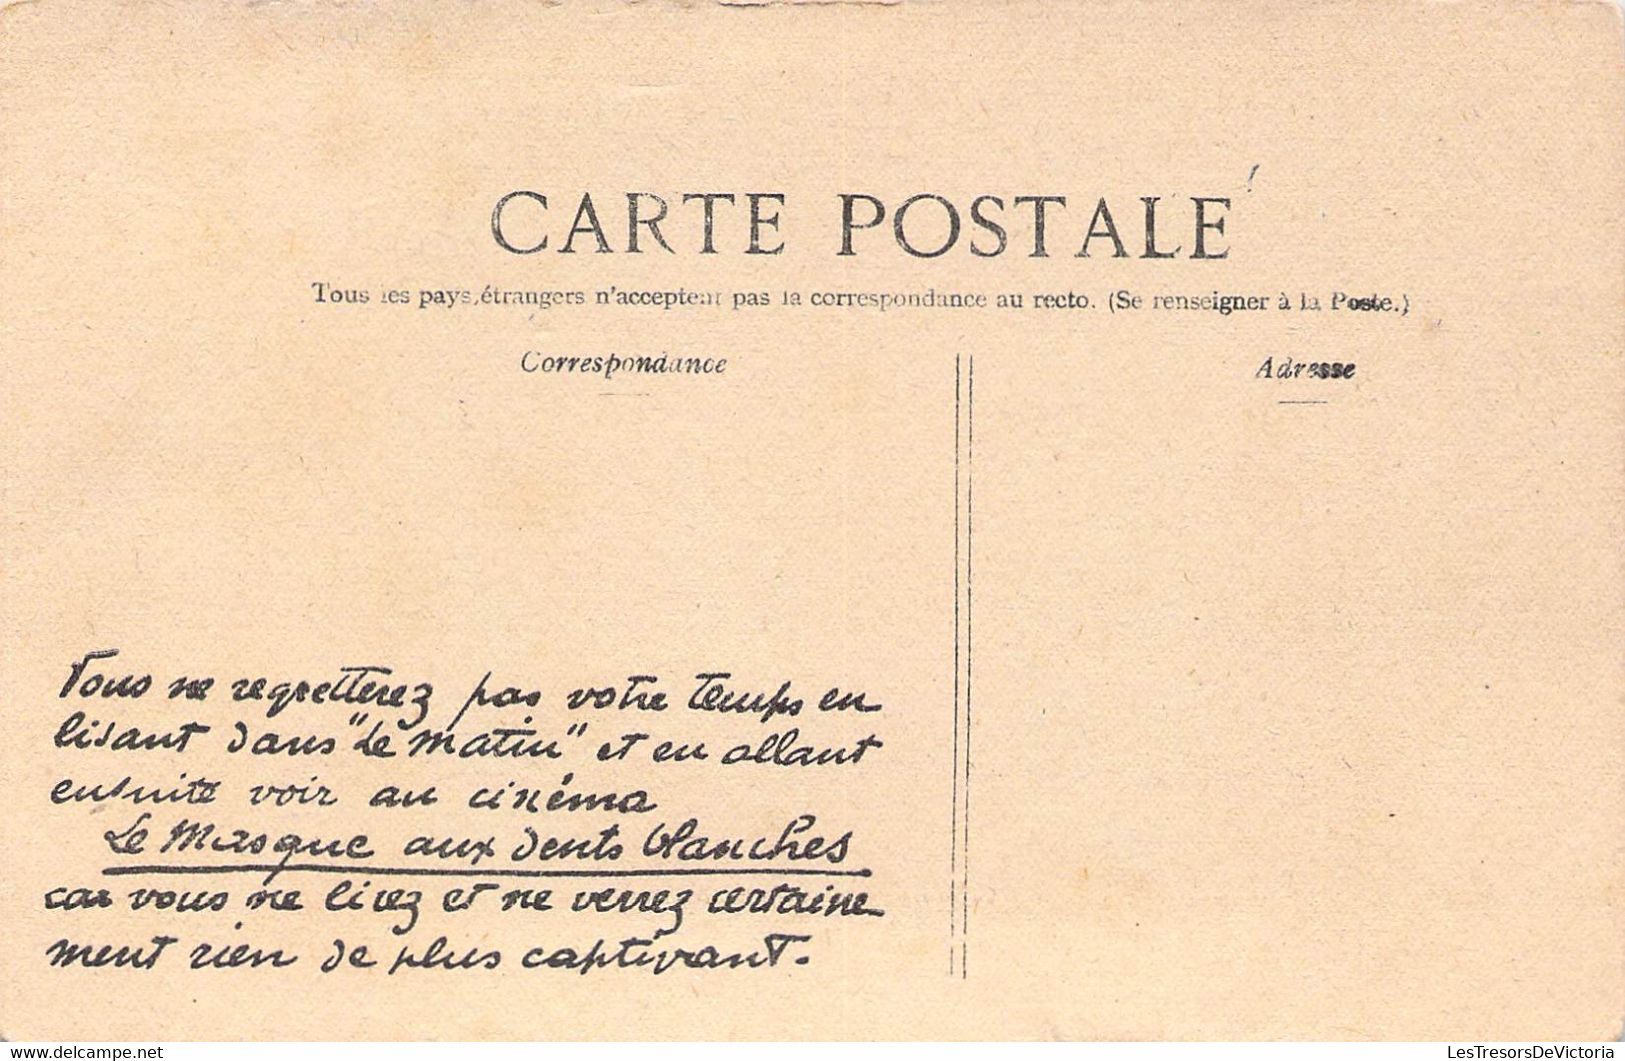 CARTE POSTALE
Tous les pays étrangers n'acceptent pas la correspondance au recto. (Se renseigner à la Poste.)
Correspondance
Adresse
Vous ne regretterez pas votre temps en
lisant dans "Le Matin" et en allant
ensuite voir au cinéma
Le Masque aux dents blanches
car vous ne lirez et ne verrez certaine-
ment rien de plus captivant.
LesTresorsDeVictoria